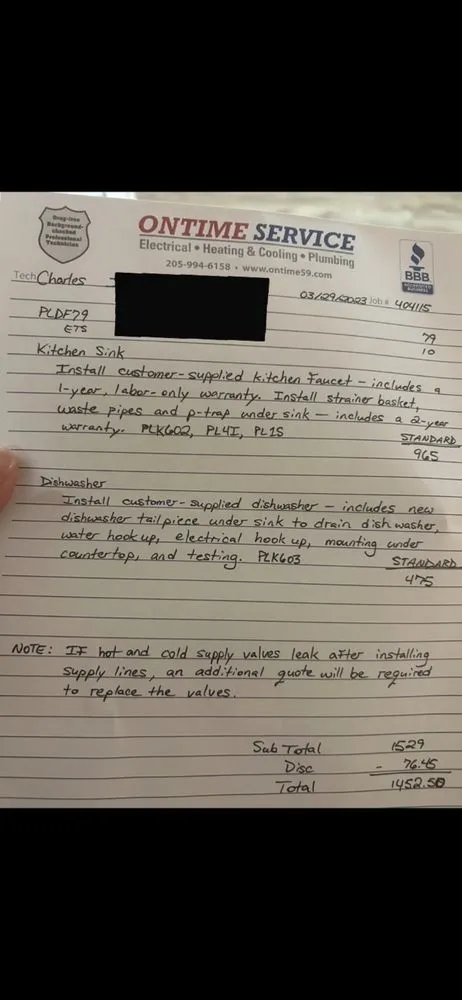 Drug-free
Background-
checked
Professional
Technician
ONTIME SERVICE
Electrical • Heating & Cooling • Plumbing
205-994-6158 • www.ontime59.com
BBB
ACCREDITED
BUSINESS
Tech Charles
03/29/2023 Job# 404115
PLDF79 79
ETS 10
Kitchen Sink
Install customer-supplied kitchen faucet - includes a
1-year, labor-only warranty. Install strainer basket,
waste pipes and p-trap under sink - includes a 2-year
warranty. PLK602, PL4I, PL1S STANDARD
965
Dishwasher
Install customer-supplied dishwasher - includes new
dishwasher tailpiece under sink to drain dishwasher,
water hook up, electrical hook up, mounting under
countertop, and testing. PLK603 STANDARD
475
NOTE: IF hot and cold supply valves leak after installing
supply lines, an additional quote will be required
to replace the valves.
Sub Total 1529
Disc - 76.45
Total 1452.50